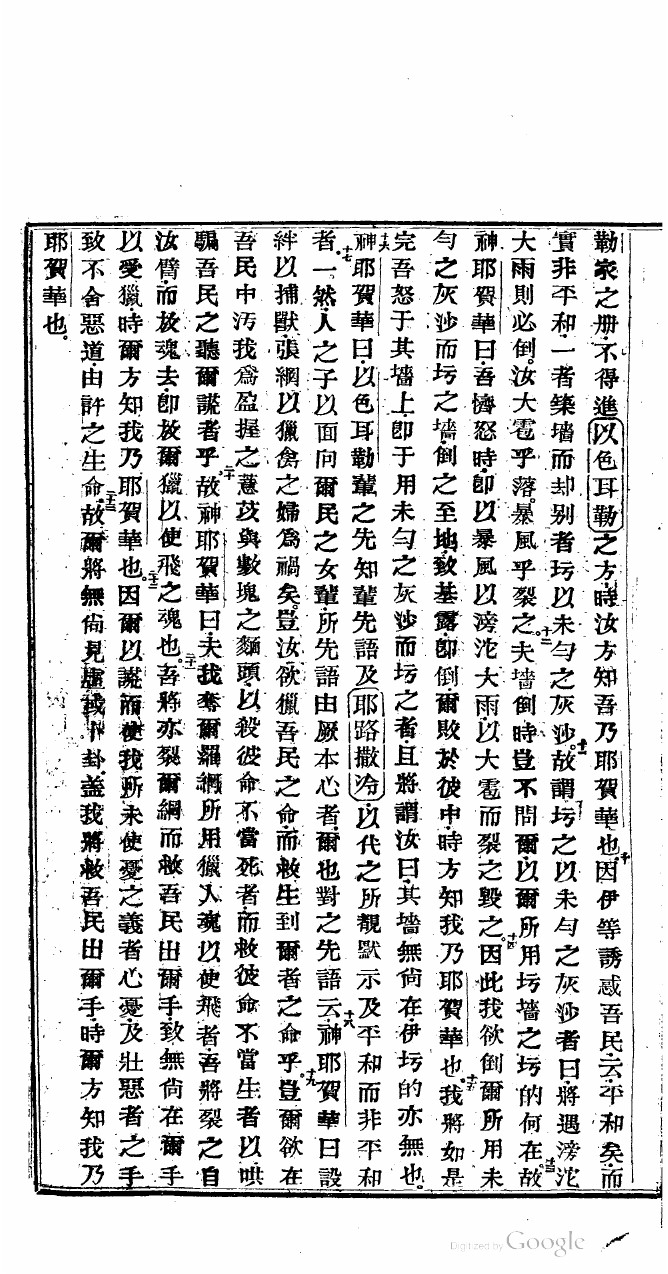 勒家之册.不得進以色耳勒之方.時汝方知吾乃耶賀華也.十因伊等誘惑吾民云.平和矣.而
實非平和.一者築墻而却别者圬以未勻之灰沙.十一故謂圬之以未勻之灰沙者曰.將遇滂沱
大雨則必倒。汝大雹乎落。暴風乎裂之.十二夫墻倒時.豈不問爾.以爾所用圬墻之圬的何在.十三故
神耶賀華曰.吾懠怒時.卽以暴風以滂沱大雨以大雹而裂之毀之。十四因此我欲倒爾所用未
勻之灰沙而圬之墻.倒之至地.致基露.卽倒爾敗於彼中.時方知我乃耶賀華也。十五我將如是
完吾怒于其墻上.卽于用未勻之灰沙而圬之者.且將謂汝曰.其墻無尙在.伊圬的亦無也。
十六神耶賀華曰.以色耳勒輩之先知輩先語及耶路撒冷.以代之所覩默示及平和而非平和
者.十七一然人之子以面向爾民之女輩.所先語由厥本心者.爾也對之先語云.十八神耶賀華曰.設
絆以捕獸.張網以獵禽之婦爲禍矣.豈汝欲獵吾民之命.而救生到爾者之命乎.十九豈爾欲在
吾民中汚我.爲盈握之薏苡與數塊之麵頭.以殺彼命不當死者.而救彼命不當生者.以哄
騙吾民之聽爾謊者乎.二十故神耶賀華曰.夫我奪爾羅網所用獵人魂以使飛者.吾將裂之自
汝臂.而放魂去.卽放爾獵以使飛之魂也.二十一吾將亦裂爾網.而救吾民出爾手.致無尙在爾手
以受獵.時爾方知我乃耶賀華也。二十二因爾以謊而使我所未使憂之義者心憂.及壯惡者之手.
致不舍惡道.由許之生命.二十三故爾將無尙見虛或卜卦.蓋我將救吾民出爾手.時爾方知我乃
耶賀華也。
Digitized by Google